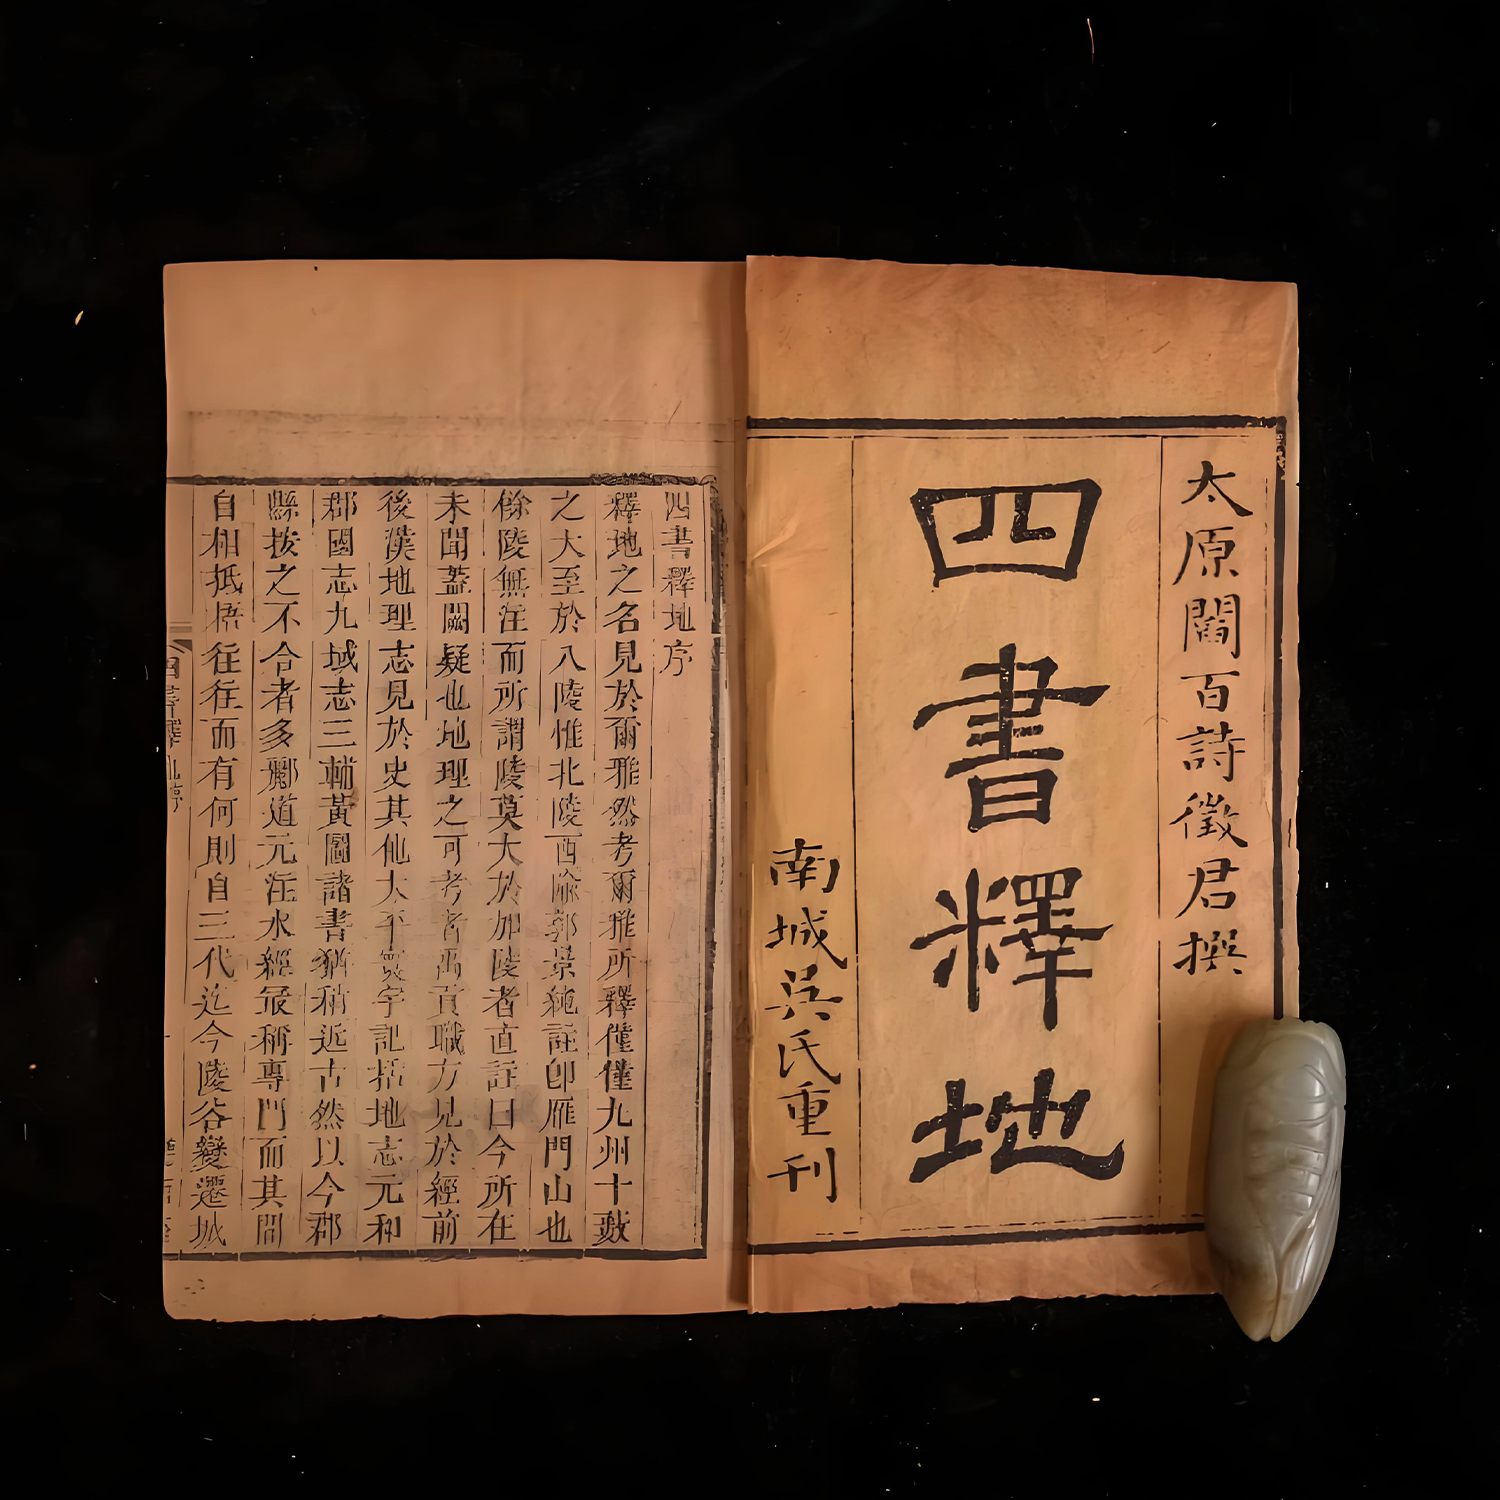 太原閻百詩徵君撰
四書釋地
南城吳氏重刊
四書釋地序
釋地之名見於爾雅然考爾雅所釋僅僅九州十藪
之大至於八陵惟北陵西隃郭景純註卽雁門山也
餘陵無注而所謂陵莫大於加陵者直註曰今所在
未聞蓋闕疑也地理之可考者禹貢職方見於經前
後漢地理志見於史其他太平寰宇記括地志元和
郡國志九域志三輔黃圖諸書猶稍近古然以今郡
縣按之不合者多酈道元注水經最稱專門而其間
自相抵捂往往而有何則自三代迄今陵谷變遷城
四書釋地序